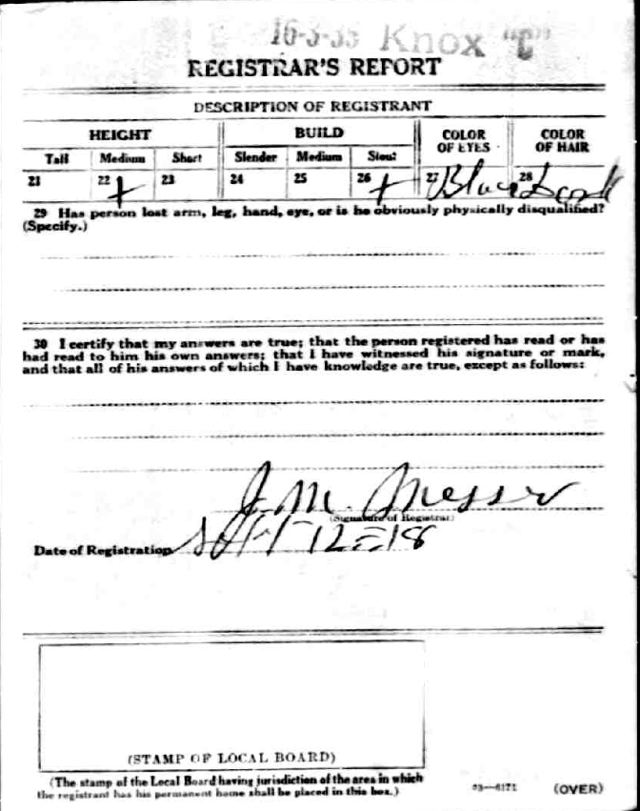 16-3-35 Knox "C"
REGISTRAR'S REPORT
DESCRIPTION OF REGISTRANT
HEIGHT BUILD COLOR OF EYES COLOR OF HAIR
Tall Medium Short Slender Medium Stout
21 22 x 23 24 25 26 x 27 Blue 28
29 Has person lost arm, leg, hand, eye, or is he obviously physically disqualified?
(Specify.)
30 I certify that my answers are true; that the person registered has read or has
had read to him his own answers; that I have witnessed his signature or mark,
and that all of his answers of which I have knowledge are true, except as follows:
J. M. Messer
(Signature of Registrar)
Date of Registration Sept-12-18
(STAMP OF LOCAL BOARD)
(The stamp of the Local Board having jurisdiction of the area in which
the registrant has his permanent home shall be placed in this box.)
03—6171 (OVER)